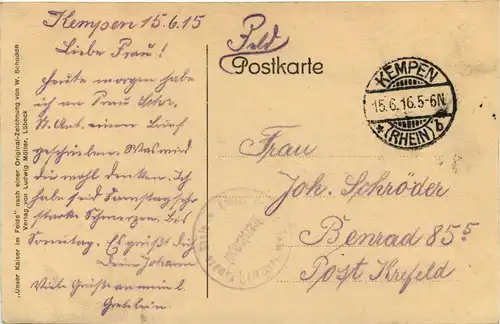 Kempen 15.6.15
Liebe Frau!
Heute morgen habe
ich an Frau Schr.
St. Ant. einen Brief
geschrieben. Was wird
du wohl denken. Ich
habe seid Samstag sch
starke Schmerzen, bis
Sonntag. Es grüßt dich
Dein Johann
Viele Grüße an mein l.
Gretelein.
"Unser Kaiser im Felde" nach einer Original-Zeichnung von W. Schodde
Verlag von Ludwig Möller, Lübeck
Feld
Postkarte
KEMPEN
15.6.16.5-6N
*(RHEIN) b
Frau
Joh. Schröder
Benrad 85 5
Post Krefeld